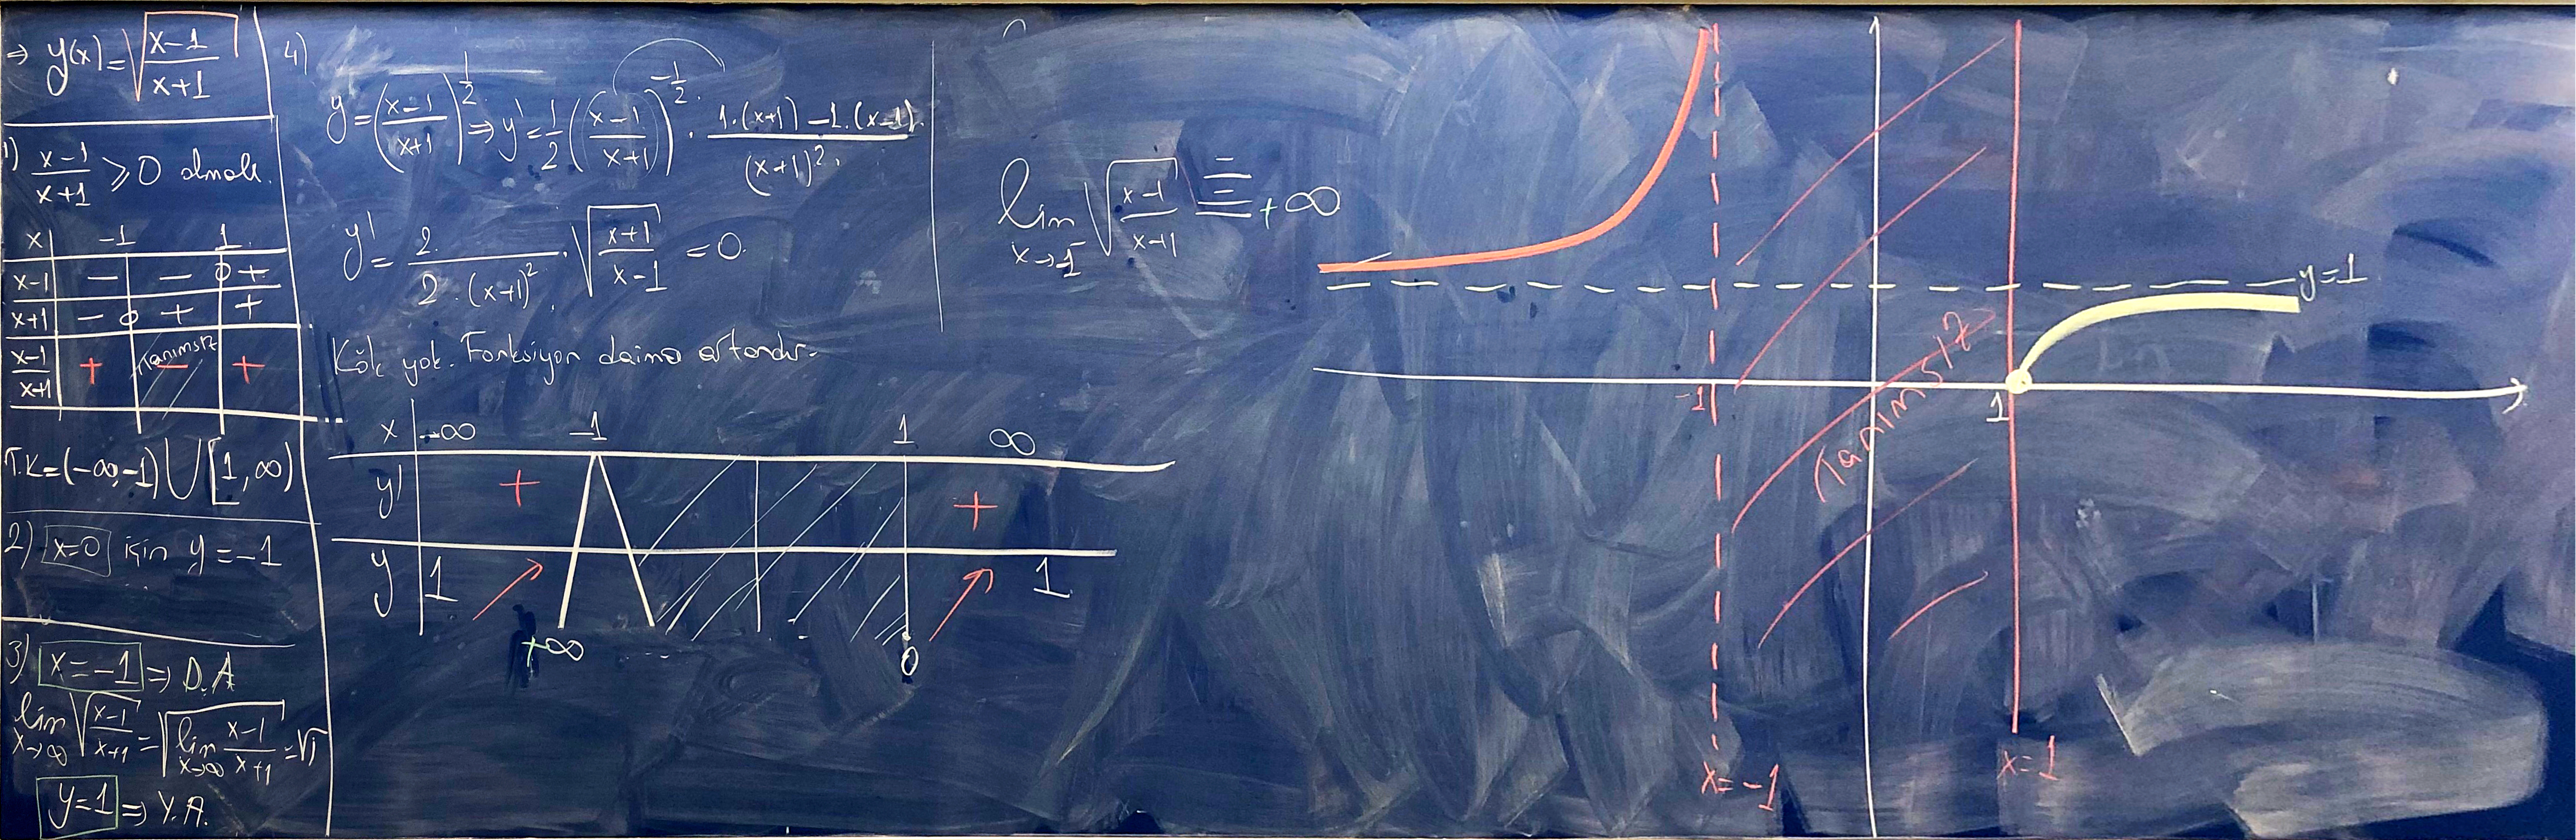 ⇒ y(x) = √((x-1)/(x+1))
1) (x-1)/(x+1) ≥ 0 olmalı.
x | -1 | 1
x-1 | − | − 0 +
x+1 | − 0 + | +
(x-1)/(x+1) | + | Tanımsız − | +
T.K = (-∞, -1) ∪ [1, ∞)
2) x=0 için y = -1
3) x = -1 ⇒ D.A
lim x→∞ √((x-1)/(x+1)) = √(lim x→∞ (x-1)/(x+1)) = √1
y=1 ⇒ Y.A.
4)
y = ((x-1)/(x+1))^(1/2) ⇒ y' = 1/2 ((x-1)/(x+1))^(-1/2) · (1.(x+1) - 1.(x-1))/(x+1)²
y' = 2/(2.(x+1)²) · √((x+1)/(x-1)) = 0.
Kök yok. Fonksiyon daima artandır.
x | -∞ -1 1 ∞
y' | + +
y | 1 ↗ +∞ 0 ↗ 1
lim x→-1⁻ √((x-1)/(x+1)) = +∞
y=1
-1
1
Tanımsız
x = -1
x=1